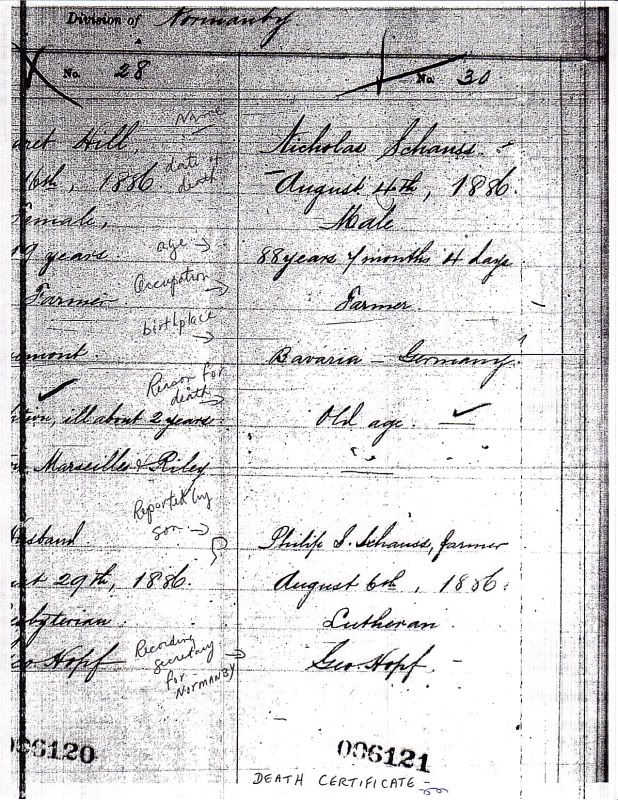 Division of Normanby
No. 28
No. 30
Name
Hill,
Nicholas Schauss
date of
death
16th, 1886
August 4th, 1886.
Female,
Male
age →
9 years.
88 years 7 months 4 days
Occupation →
Farmer
Farmer.
birthplace →
mont.
Bavaria – Germany
Reason for
death →
ill about 2 years
Old age.
Marseilles & Riley
" "
Reported by
son →
Husband
Philip S. Schauss, farmer
29th, 1886.
August 6th, 1886.
sbyterian
Lutheran.
Recording
secretary
for
NORMANBY →
Geo Hopf
Geo Hopf.
006120
006121
DEATH CERTIFICATE